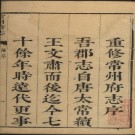 重修常州府志序
吾郡志自唐太常續
王文肅而後迄今七
十餘年時遠代更事